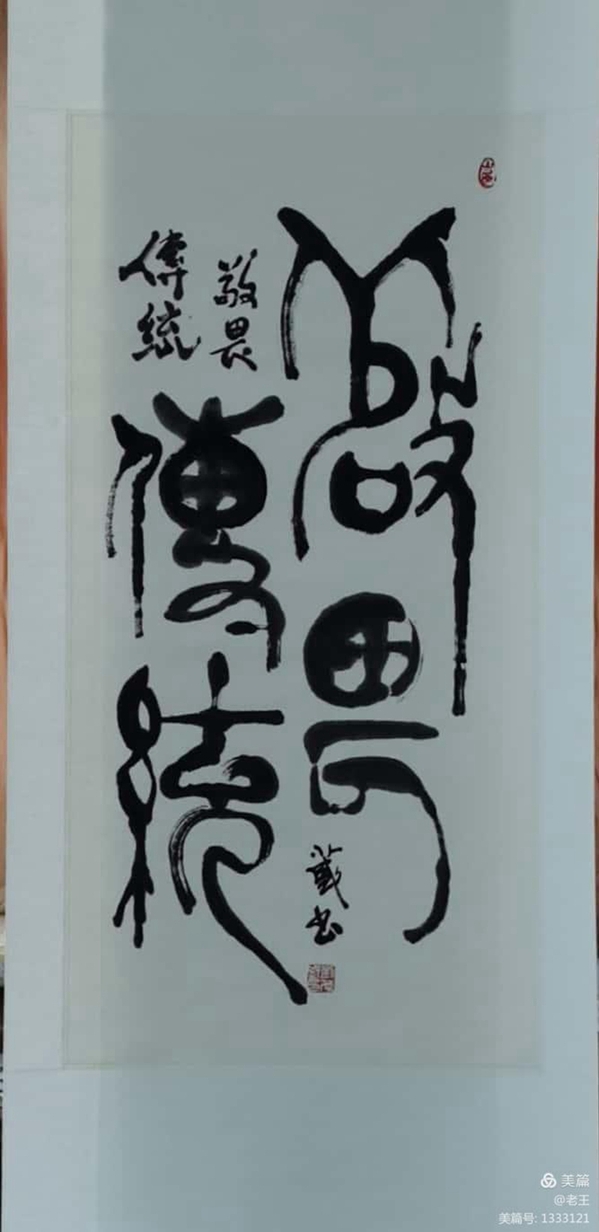 敬畏
傳統
敬畏
傳統
書
美篇
@老王
美篇号: 1333121